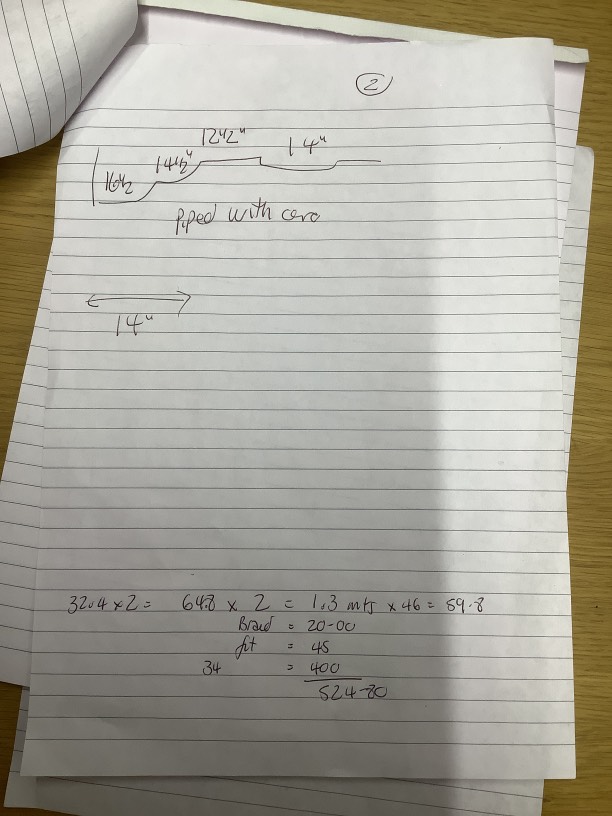 2
12 1/2" 14"
16 1/2 14 1/2"
Piped with
14"
32.4 x 2 = 64.8 x 2 = 1.3 mts x 46 = 59.8
Braid = 20-00
fit = 45
34 = 400
524-80